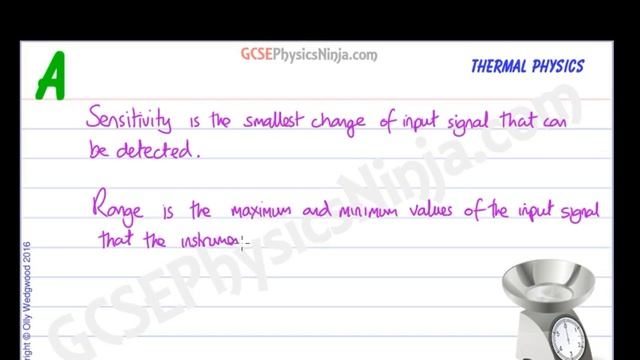 GCSEPhysicsNinja.com
THERMAL PHYSICS
A
Sensitivity is the smallest change of input signal that can
be detected.
Range is the maximum and minimum values of the input signal
that the instrume
GCSEPhysicsNinja.com
Copyright © Olly Wedgwood 2016